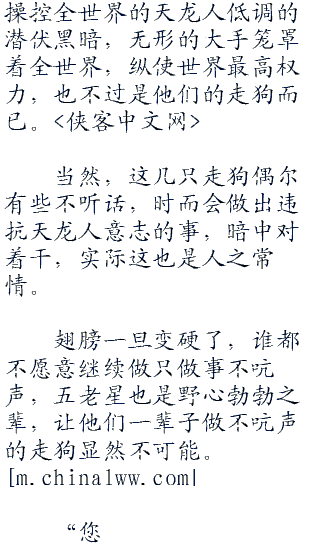 操控全世界的天龙人低调的
潜伏黑暗，无形的大手笼罩
着全世界，纵使世界最高权
力，也不过是他们的走狗而
已。<侠客中文网>
当然，这几只走狗偶尔
有些不听话，时而会做出违
抗天龙人意志的事，暗中对
着干，实际这也是人之常
情。
翅膀一旦变硬了，谁都
不愿意继续做只做事不吭
声，五老星也是野心勃勃之
辈，让他们一辈子做不吭声
的走狗显然不可能。
[m.chinalww.com]
“您